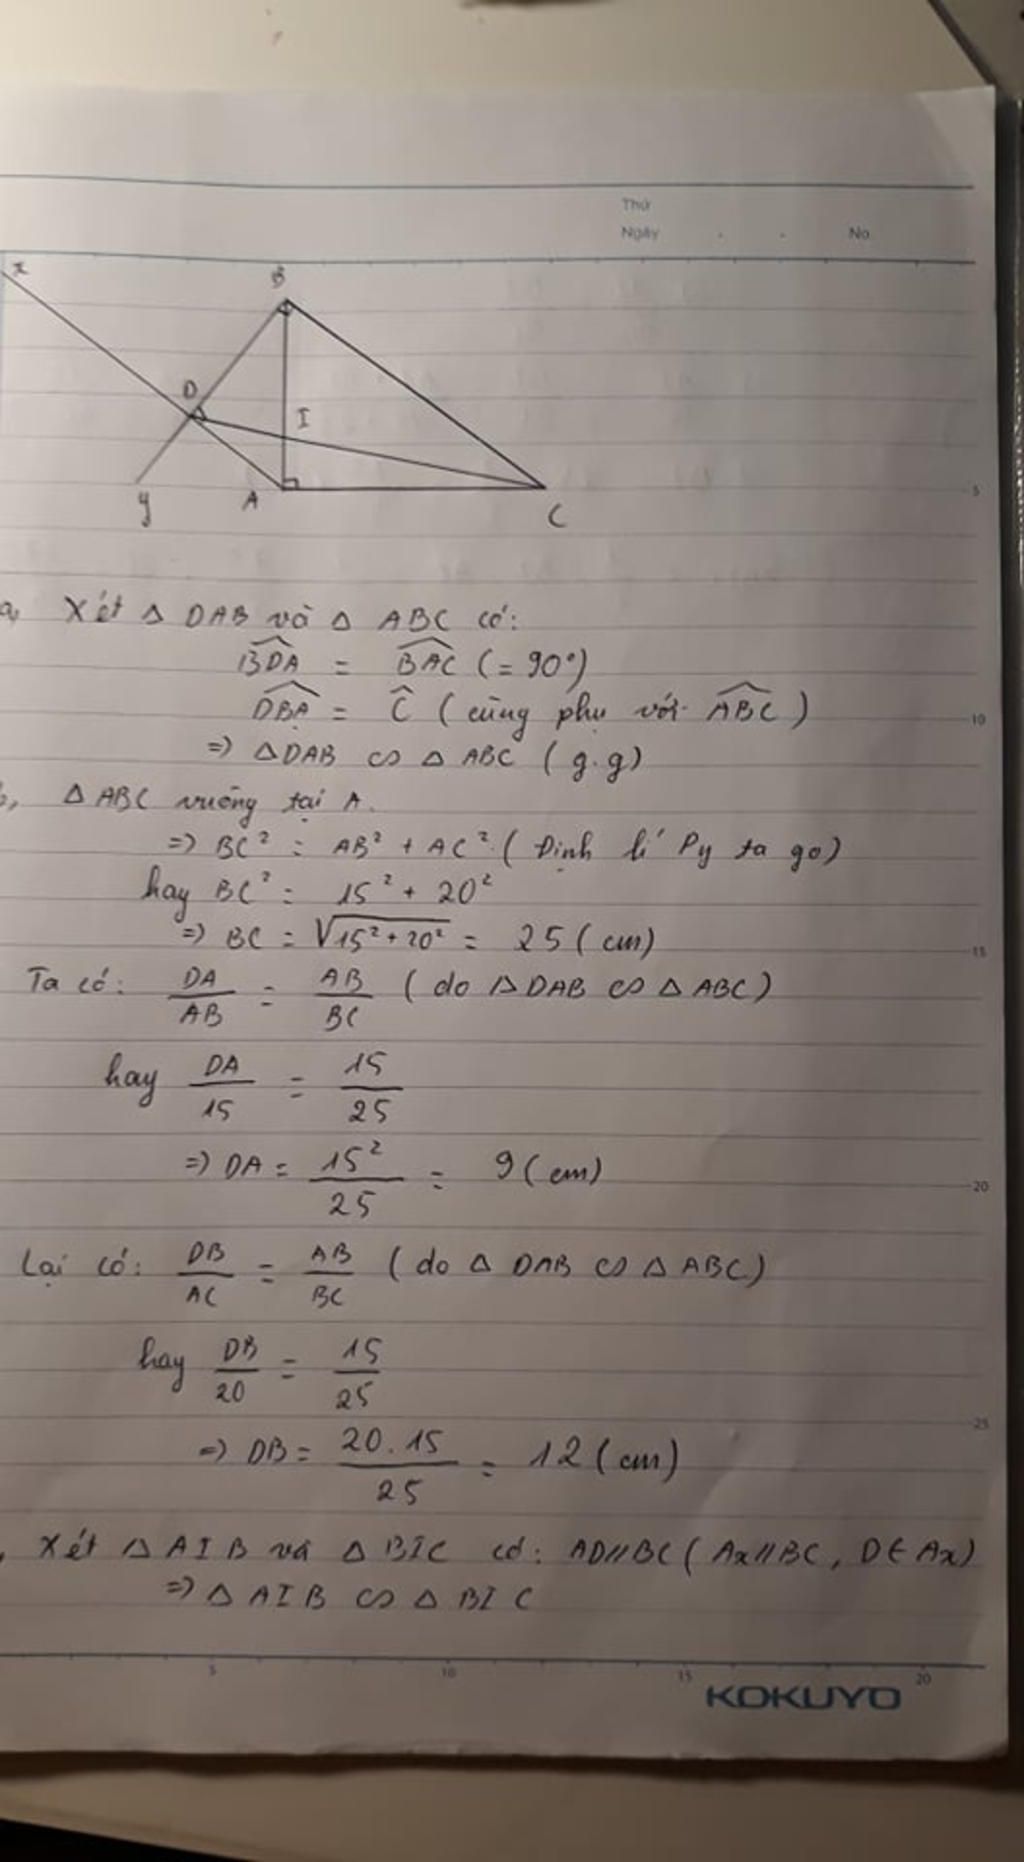 Thứ
Ngày . . No.
x
B
D
I
y A C
5
a, Xét △ DAB và △ ABC có:
BDA = BAC (= 90°)
DBA = Ĉ (cùng phụ với ABC)
10
=> △DAB ∽ △ ABC (g.g)
b, △ ABC vuông tại A.
=> BC² = AB² + AC² (Định lí Py ta go)
hay BC² = 15² + 20²
=> BC = √15² + 20² = 25 (cm)
15
Ta có: DA/AB = AB/BC (do △DAB ∽ △ ABC)
hay DA/15 = 15/25
=> DA = 15²/25 = 9 (cm)
20
Lại có: DB/AC = AB/BC (do △ DAB ∽ △ ABC)
hay DB/20 = 15/25
25
=> DB = 20.15/25 = 12 (cm)
, Xét △ AIB và △ BIC có: AD//BC (Ax//BC, D∈Ax)
=> △ AIB ∽ △ BIC
5 10 15 20
KOKUYO